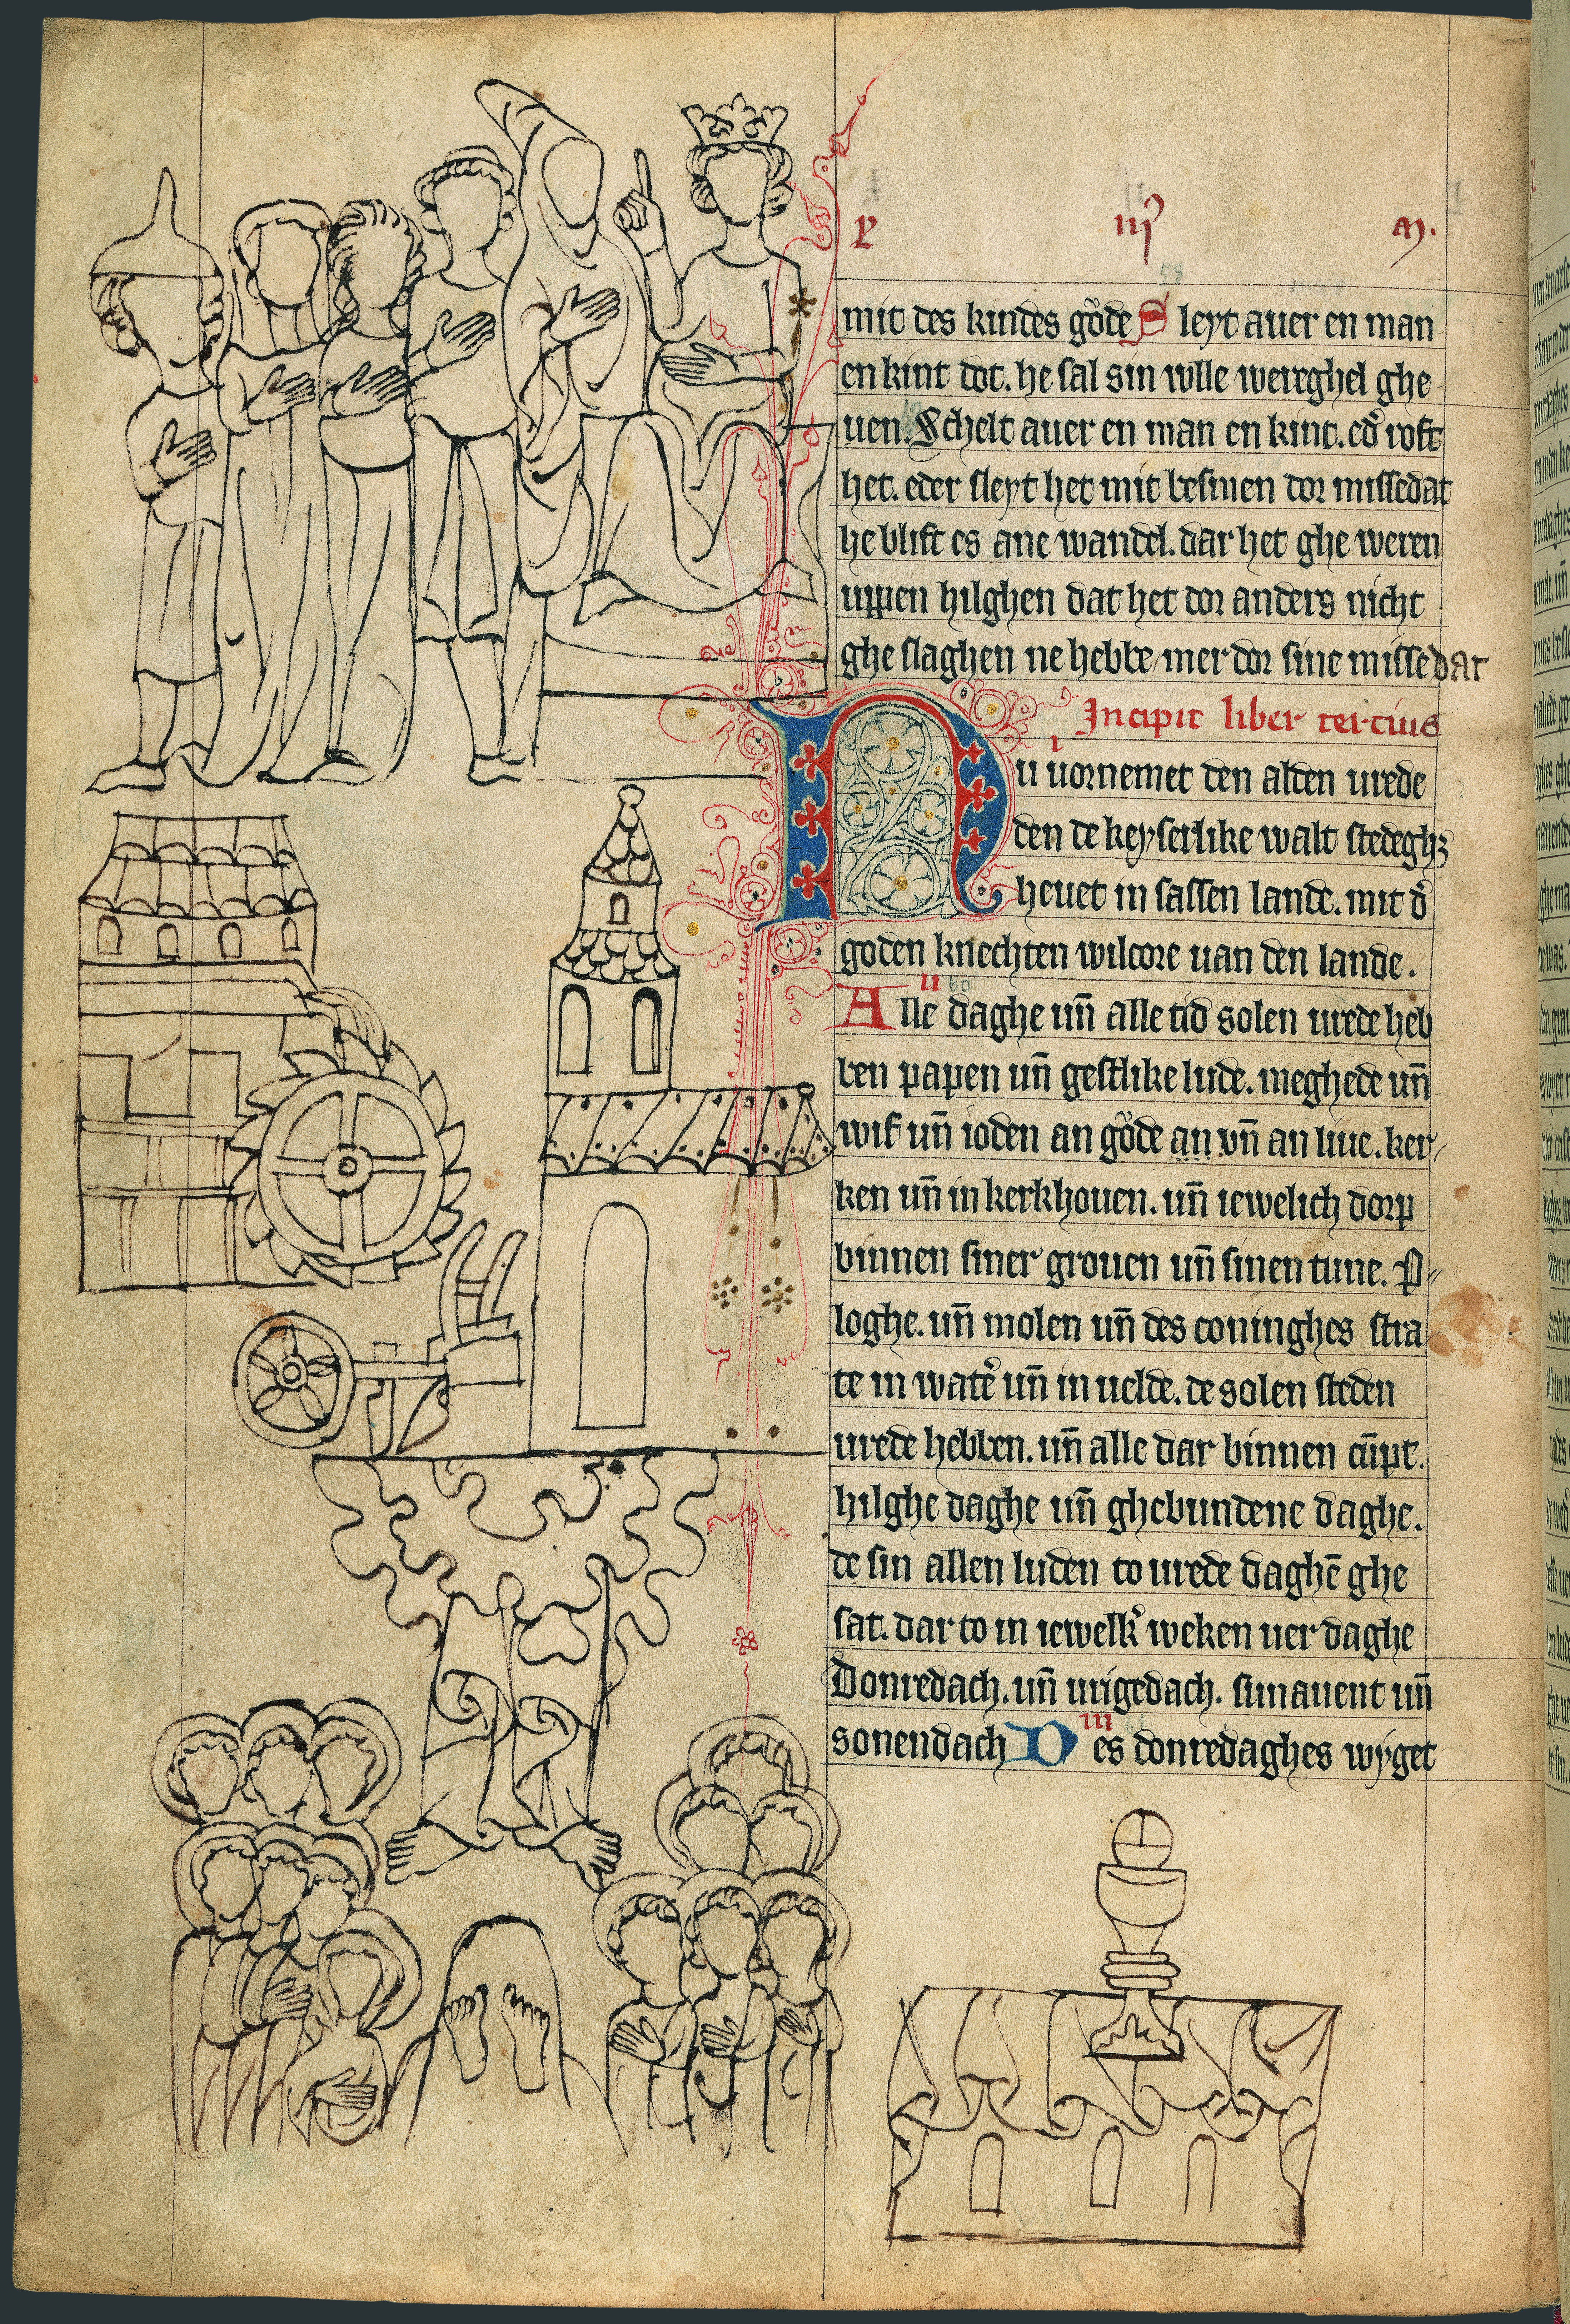 L iij m.
mit des kindes gode S leyt auer en man
en kint dot. he sal sin wlle wereghel ghe
uen. Schelt auer en man en kint. ed͛ roft
het. eder sleyt het mit besmen dor missedat
he blift es ane wandel. dar het ghe weren
uppen hilghen dat het dor anders nicht
ghe slaghen ne hebbe / mer dor sine missedat
Incipit liber tertius
N i u uornemet den alden urede
den de keyserlike walt stedegh
heuet in sassen lande. mit d͛
goden knechten wilcore uan den lande.
ii A lle daghe un̄ alle tid solen urede heb
ben papen un̄ gestlike lude. meghede un̄
wif un̄ ioden an gode an un̄ an liue. ker
ken un̄ in kerkhouen. un̄ iewelich dorp
binnen siner grouen un̄ sinen tune. P
loghe. un̄ molen un̄ des coninghes stra
te in wat͛e un̄ in uelde. de solen steden
urede hebben. un̄ alle dar binnen cu̅pt.
hilghe daghe un̄ ghebundene daghe.
de sin allen luden to urede daghē ghe
sat. dar to in iewelk͛ weken uer daghe
Donredach. un̄ urigedach. sunauent un̄
sonendach iii D es donredaghes wyget